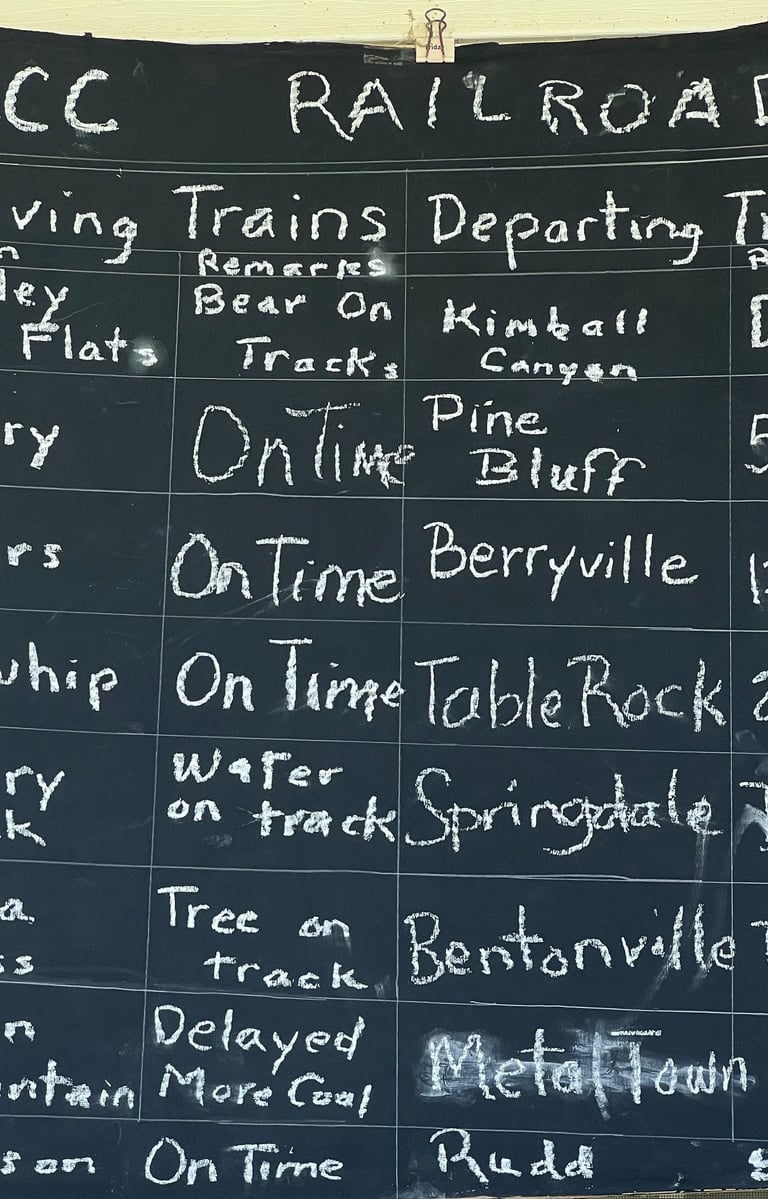 CC RAILROAD
ving Trains Departing Tr
n Remarks R
ley Bear On Kimball
Flats Tracks Canyon
ry On Time Pine 5
Bluff
rs On Time Berryville 1
whip On Time Table Rock 2
ry Water Springdale
k on track
a Tree on Bentonville
ss track
n Delayed Metal Town
ntain More Coal
son On Time Rudd